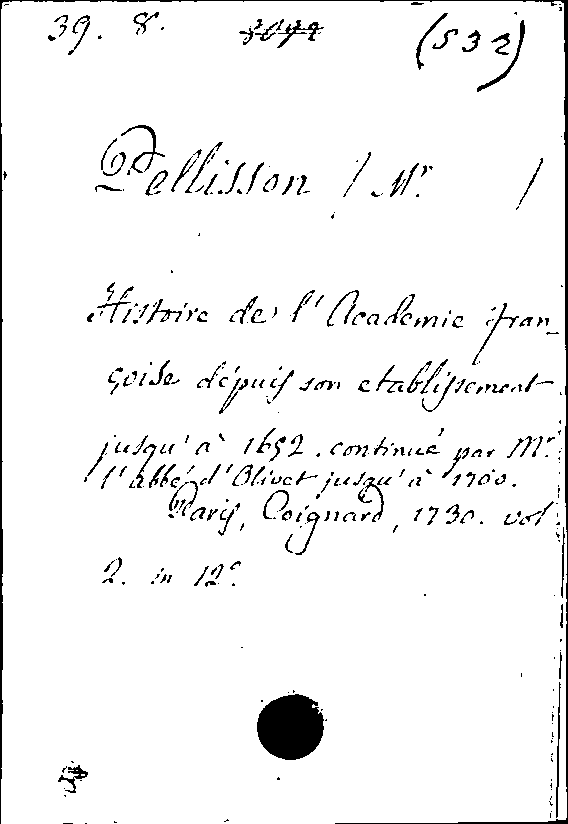 39. 8. (532)
Pellisson / Mr. /
Histoire de l'Academie fran_
çoise dépuis son etablissement
jusqu'à 1652. continué par Mr.
l'abbé d'Olivet jusqu'à 1700.
Paris, Coignard, 1730. vol
2. in 12º